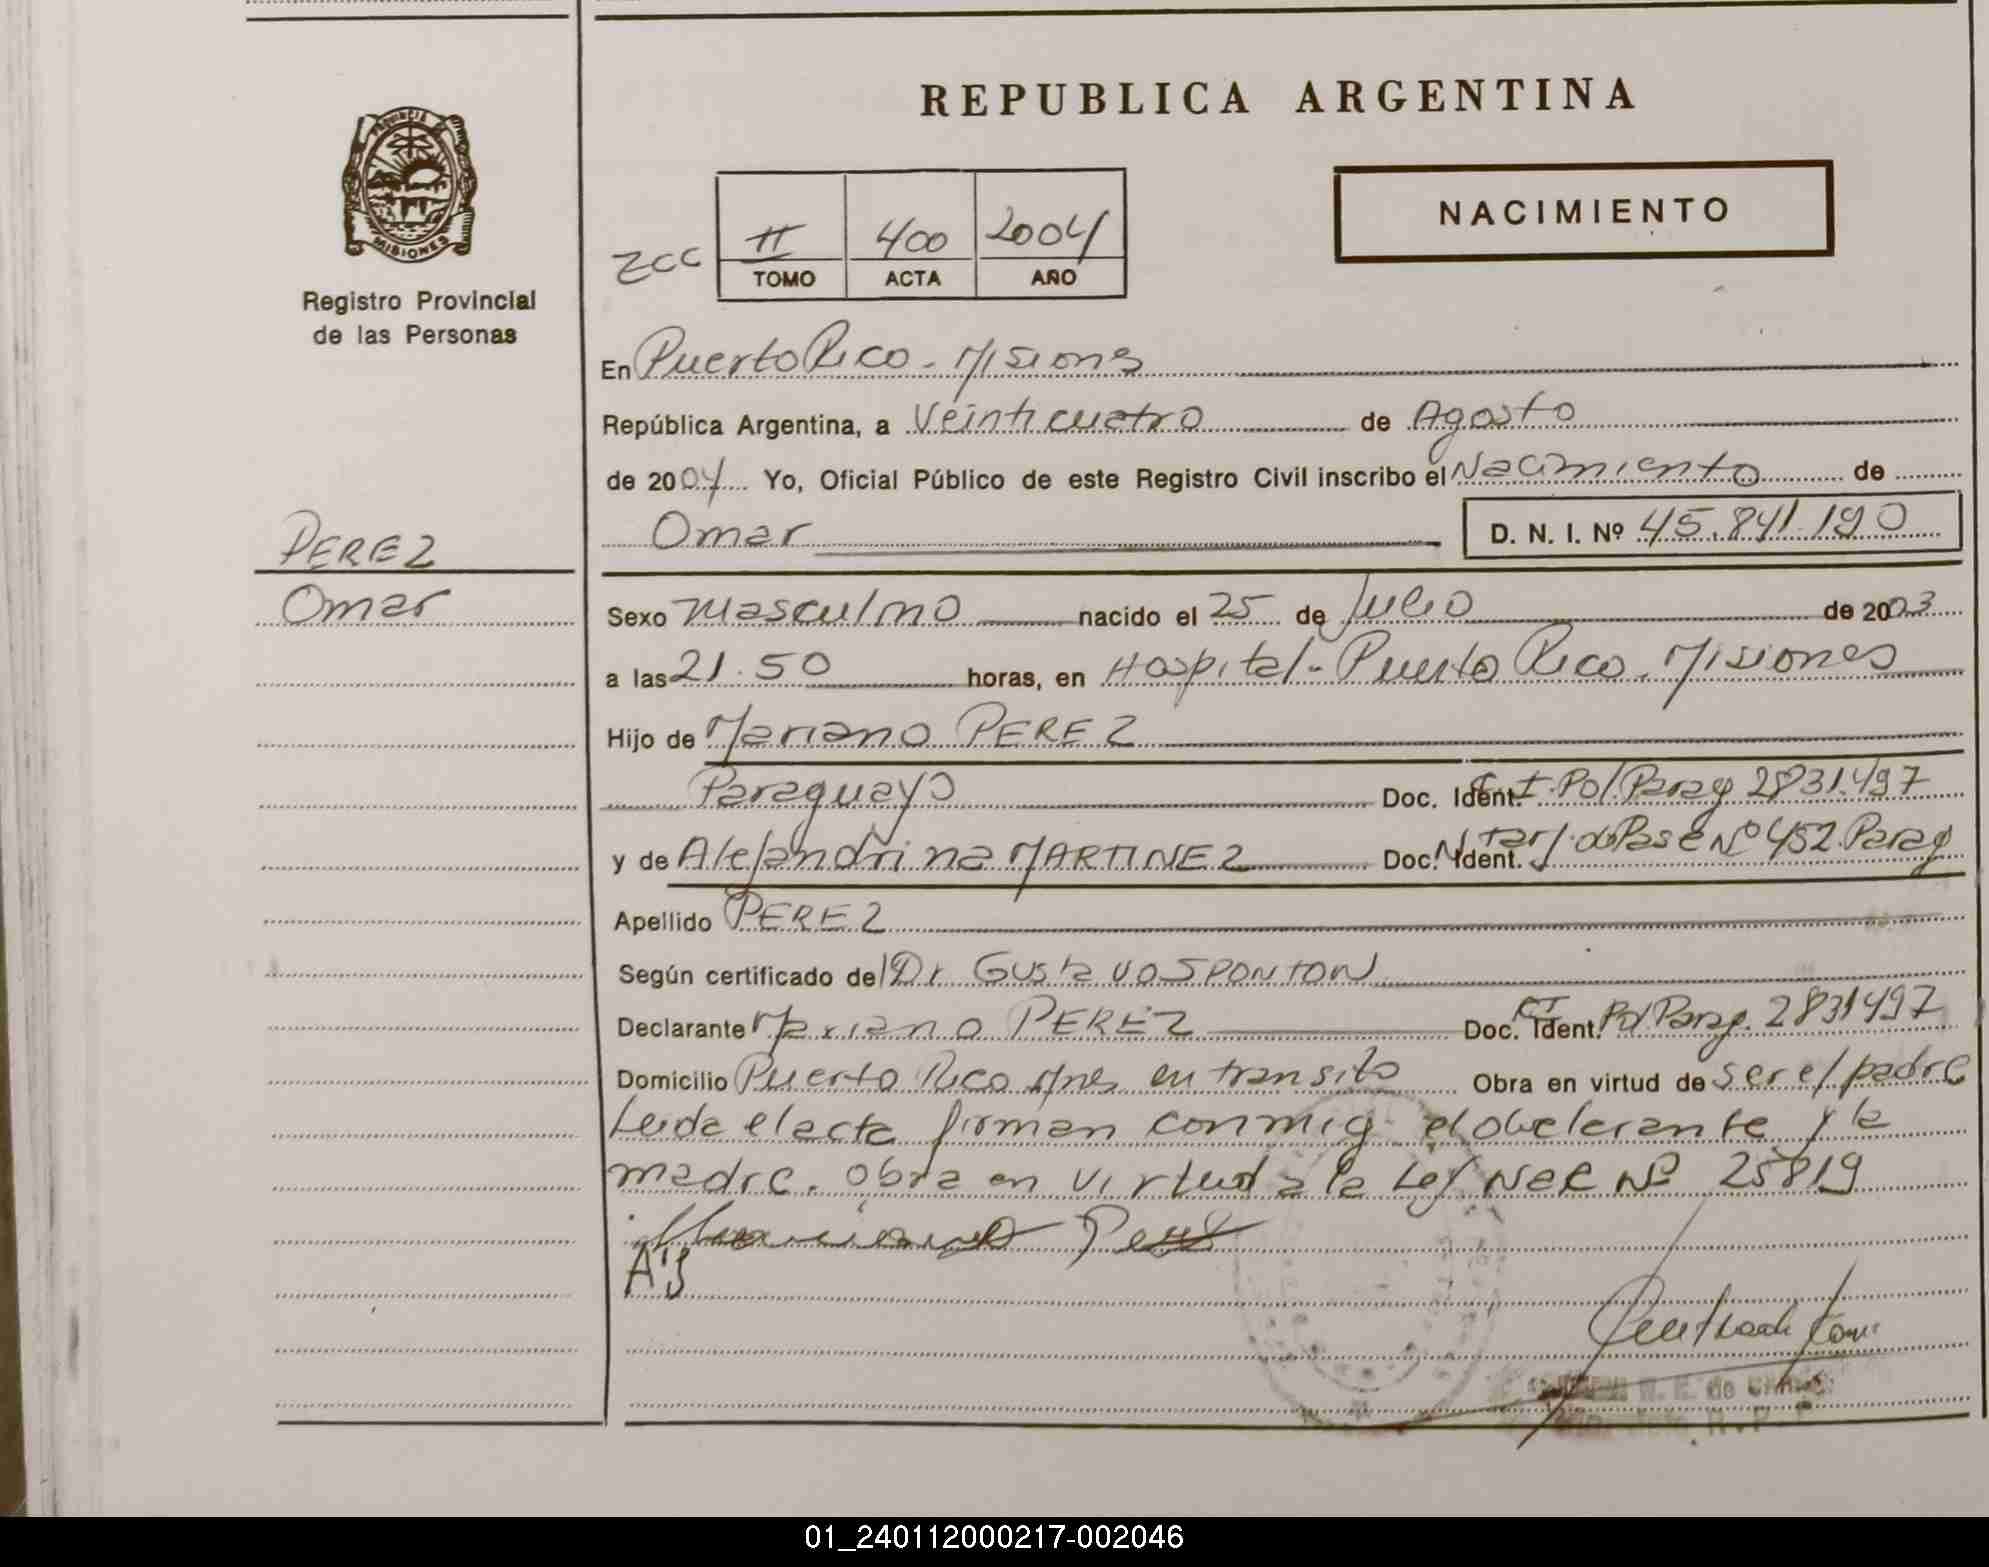 REPUBLICA ARGENTINA
PROVINCIA DE
MISIONES
Registro Provincial
de las Personas
ZCC
II 400 2004
TOMO ACTA AÑO
NACIMIENTO
En Puerto Rico - Misiones
República Argentina, a Veinticuatro de Agosto
de 2004 Yo, Oficial Público de este Registro Civil inscribo el Nacimiento de
Omar D. N. I. Nº 45.841.190
PEREZ
Omar
Sexo Masculino nacido el 25 de Julio de 2003
a las 21.50 horas, en Hospital - Puerto Rico. Misiones
Hijo de Mariano PEREZ
Paraguayo Doc. Ident. C.I. Pol. Parag 2831497
y de Alejandrina MARTINEZ Doc. Ident. N tarj. de Pase Nº 452 Parag
Apellido PEREZ
Según certificado de Dr. Gustavo SPONTON
Declarante Mariano PEREZ Doc. Ident. CI Pol Parag. 2831497
Domicilio Puerto Rico Mnes en transito Obra en virtud de ser el padre
Leida el acta firman conmig el declarante y la
madre. Obra en virtud a la Ley Nac Nº 25819
Mariano Perez
A'S
R. P. P
01_240112000217-002046